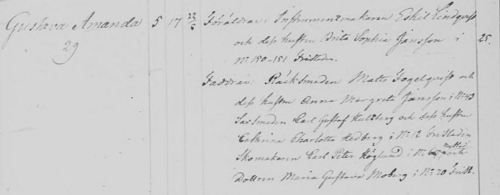 Gustava Amanda 5 17 Föräldrar: Instrumentmakaren Eskil Lindqvist
29 och dess hustru Brita Sophia Jansson i 25.
Nr 150-151 Fristaden.
Faddrar: Räcksmeden Matts Fogelqvist och
dess hustru Anna Margreta Jansson i Nr 43
Carl Gustaf och dess hustru
Cathrina Charlotta Hedberg i Nr 2 Fristaden
Skomakaren Carl Peter Höglund i Nr
Dottren Maria Gustava Moberg i Nr 20 Frist.